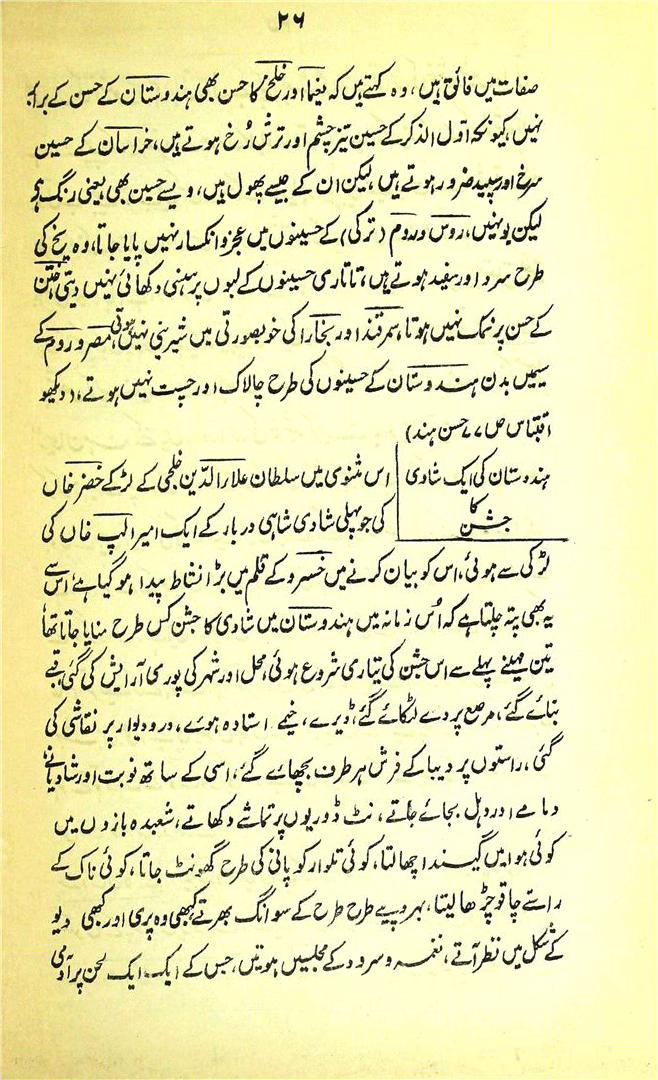 ۲۶
صفات میں فائق ہیں، وہ کہتے ہیں کہ یغما اور خلخ کا حسن بھی ہندوستان کے حسن کے برابر
نہیں، کیونکہ اول الذکر کے حسین تیز چشم اور ترش رخ ہوتے ہیں، خراسان کے حسین
سرخ اور سپید ضرور ہوتے ہیں لیکن ان کے جیسے پھول ہیں، ویسے حسین بھی یعنی رنگ ہے
لیکن بو نہیں، روس و روم (ترکی) کے حسینوں میں عجز و انکسار نہیں پایا جاتا، وہ یخ کی
طرح سرد اور سفید ہوتے ہیں، تاتاری حسینوں کے لبوں پر ہنسی دکھائی نہیں دیتی ختن
کے حسن پر نمک نہیں ہوتا، سمرقند اور بخارا کی خوبصورتی میں شیرینی نہیں ہوتی، مصر و روم کے
سیمیں بدن ہندوستان کے حسینوں کی طرح چالاک اور چست نہیں ہوتے، (دیکھو
اقتباس ص ۷۷ حسن ہند)
ہندوستان کی ایک شادی کا جشن
اس مثنوی میں سلطان علاءالدین خلجی کے لڑکے خضر خاں
کی جو پہلی شادی شاہی دربار کے ایک امیر الپ خاں کی
لڑکی سے ہوئی، اس کو بیان کرنے میں خسرو کے قلم میں بڑا نشاط پیدا ہوگیا ہے، اس سے
یہ بھی پتہ چلتا ہے کہ اس زمانہ میں ہندوستان میں شادی کا جشن کس طرح منایا جاتا تھا
تین مہینے پہلے سے اس جشن کی تیاری شروع ہوئی، محل اور شہر کی پوری آرایش کی گئی، قبے
بنائے گئے، مرصع پردے لٹکائے گئے، ڈیرے، خیمے استادہ ہوے، در و دیوار پر نقاشی کی
گئی، راستوں پر دیبا کے فرش ہر طرف بچھائے گئے، اسی کے ساتھ نوبت اور شادیانے
دمامے اور دہل بجائے جاتے، نٹ ڈوریوں پر تماشے دکھاتے، شعبدہ بازوں میں
کوئی ہوا میں گیند اچھالتا، کوئی تلوار کو پانی کی طرح گھونٹ جاتا، کوئی ناک کے
راستے چاقو چڑھا لیتا، بہروپیے طرح طرح کے سوانگ بھرتے کبھی وہ پری اور کبھی دیو
کے شکل میں نظر آتے، نغمہ و سرود کے مجلسیں ہوتیں، جس کے ایک ایک لحن پر آدمی